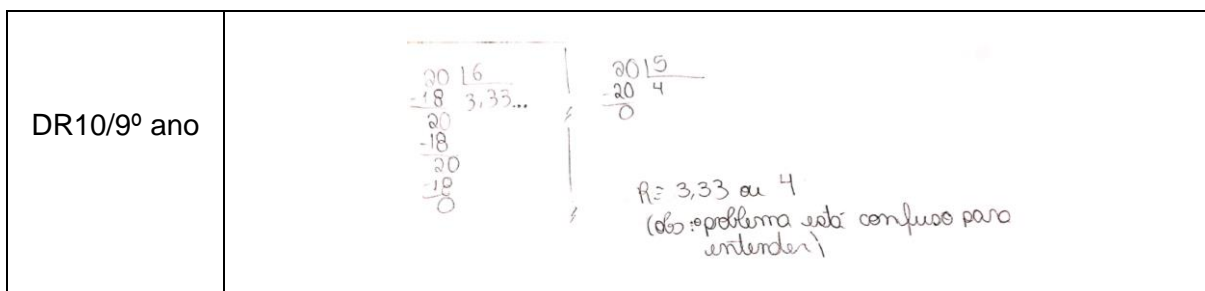 DR10/9º ano
20 | 6
-18 3,33...
20
-18
20
-18
0
20 | 5
-20 4
0
R= 3,33 ou 4
(obs: o problema está confuso para
entender)